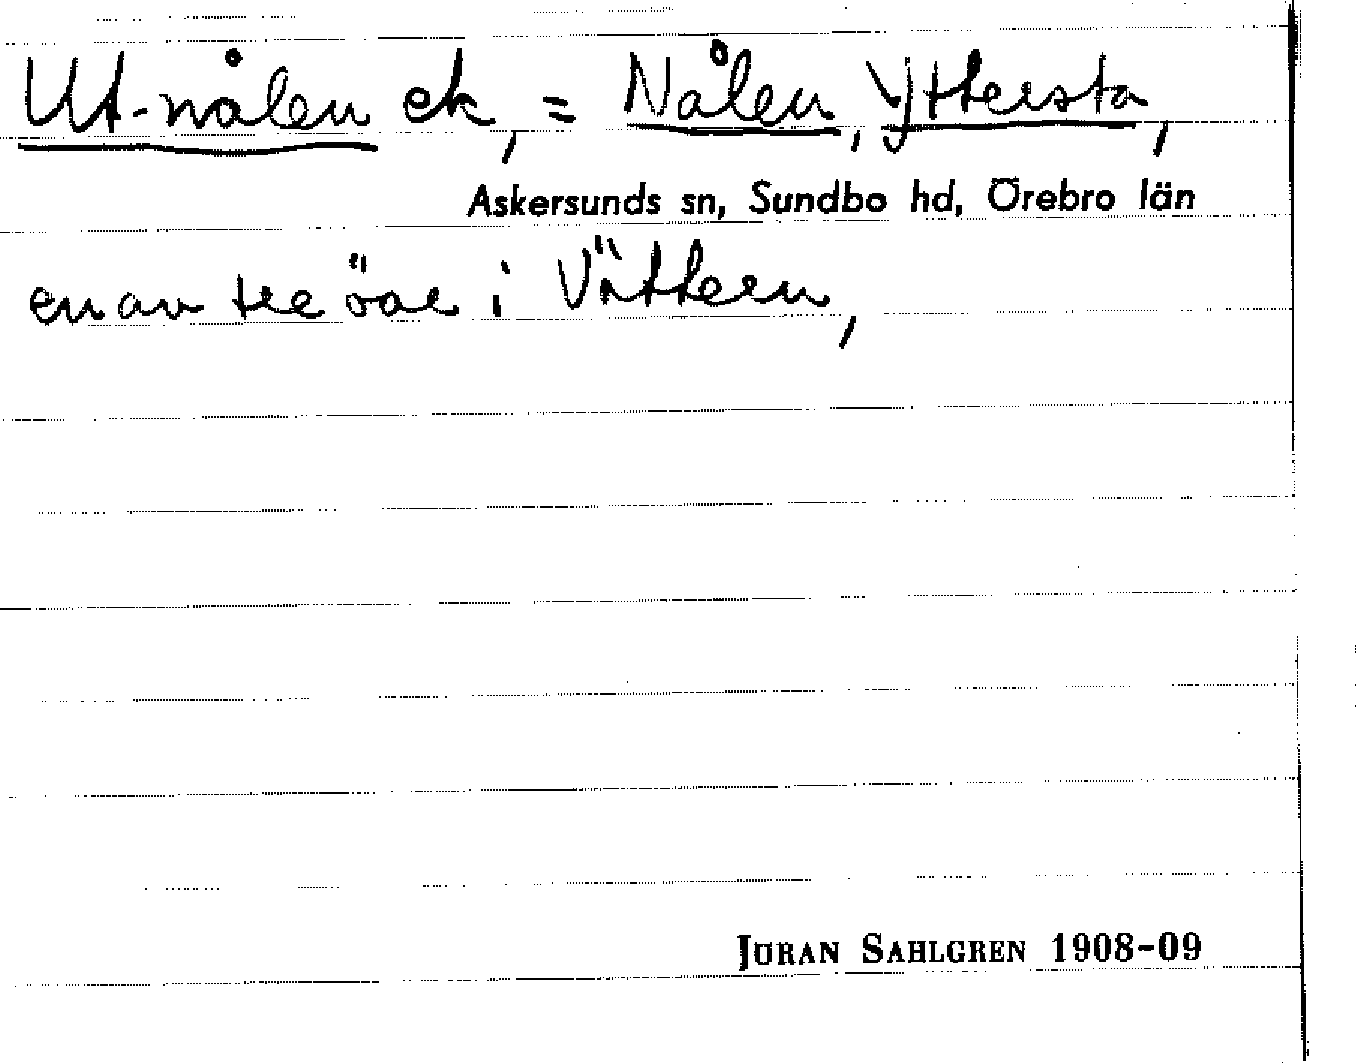 Ut-nålen ek, = Nålen, Yttersta,
Askersunds sn, Sundbo hd, Örebro län
en av tre öar i Vättern,
Jöran Sahlgren 1908-09